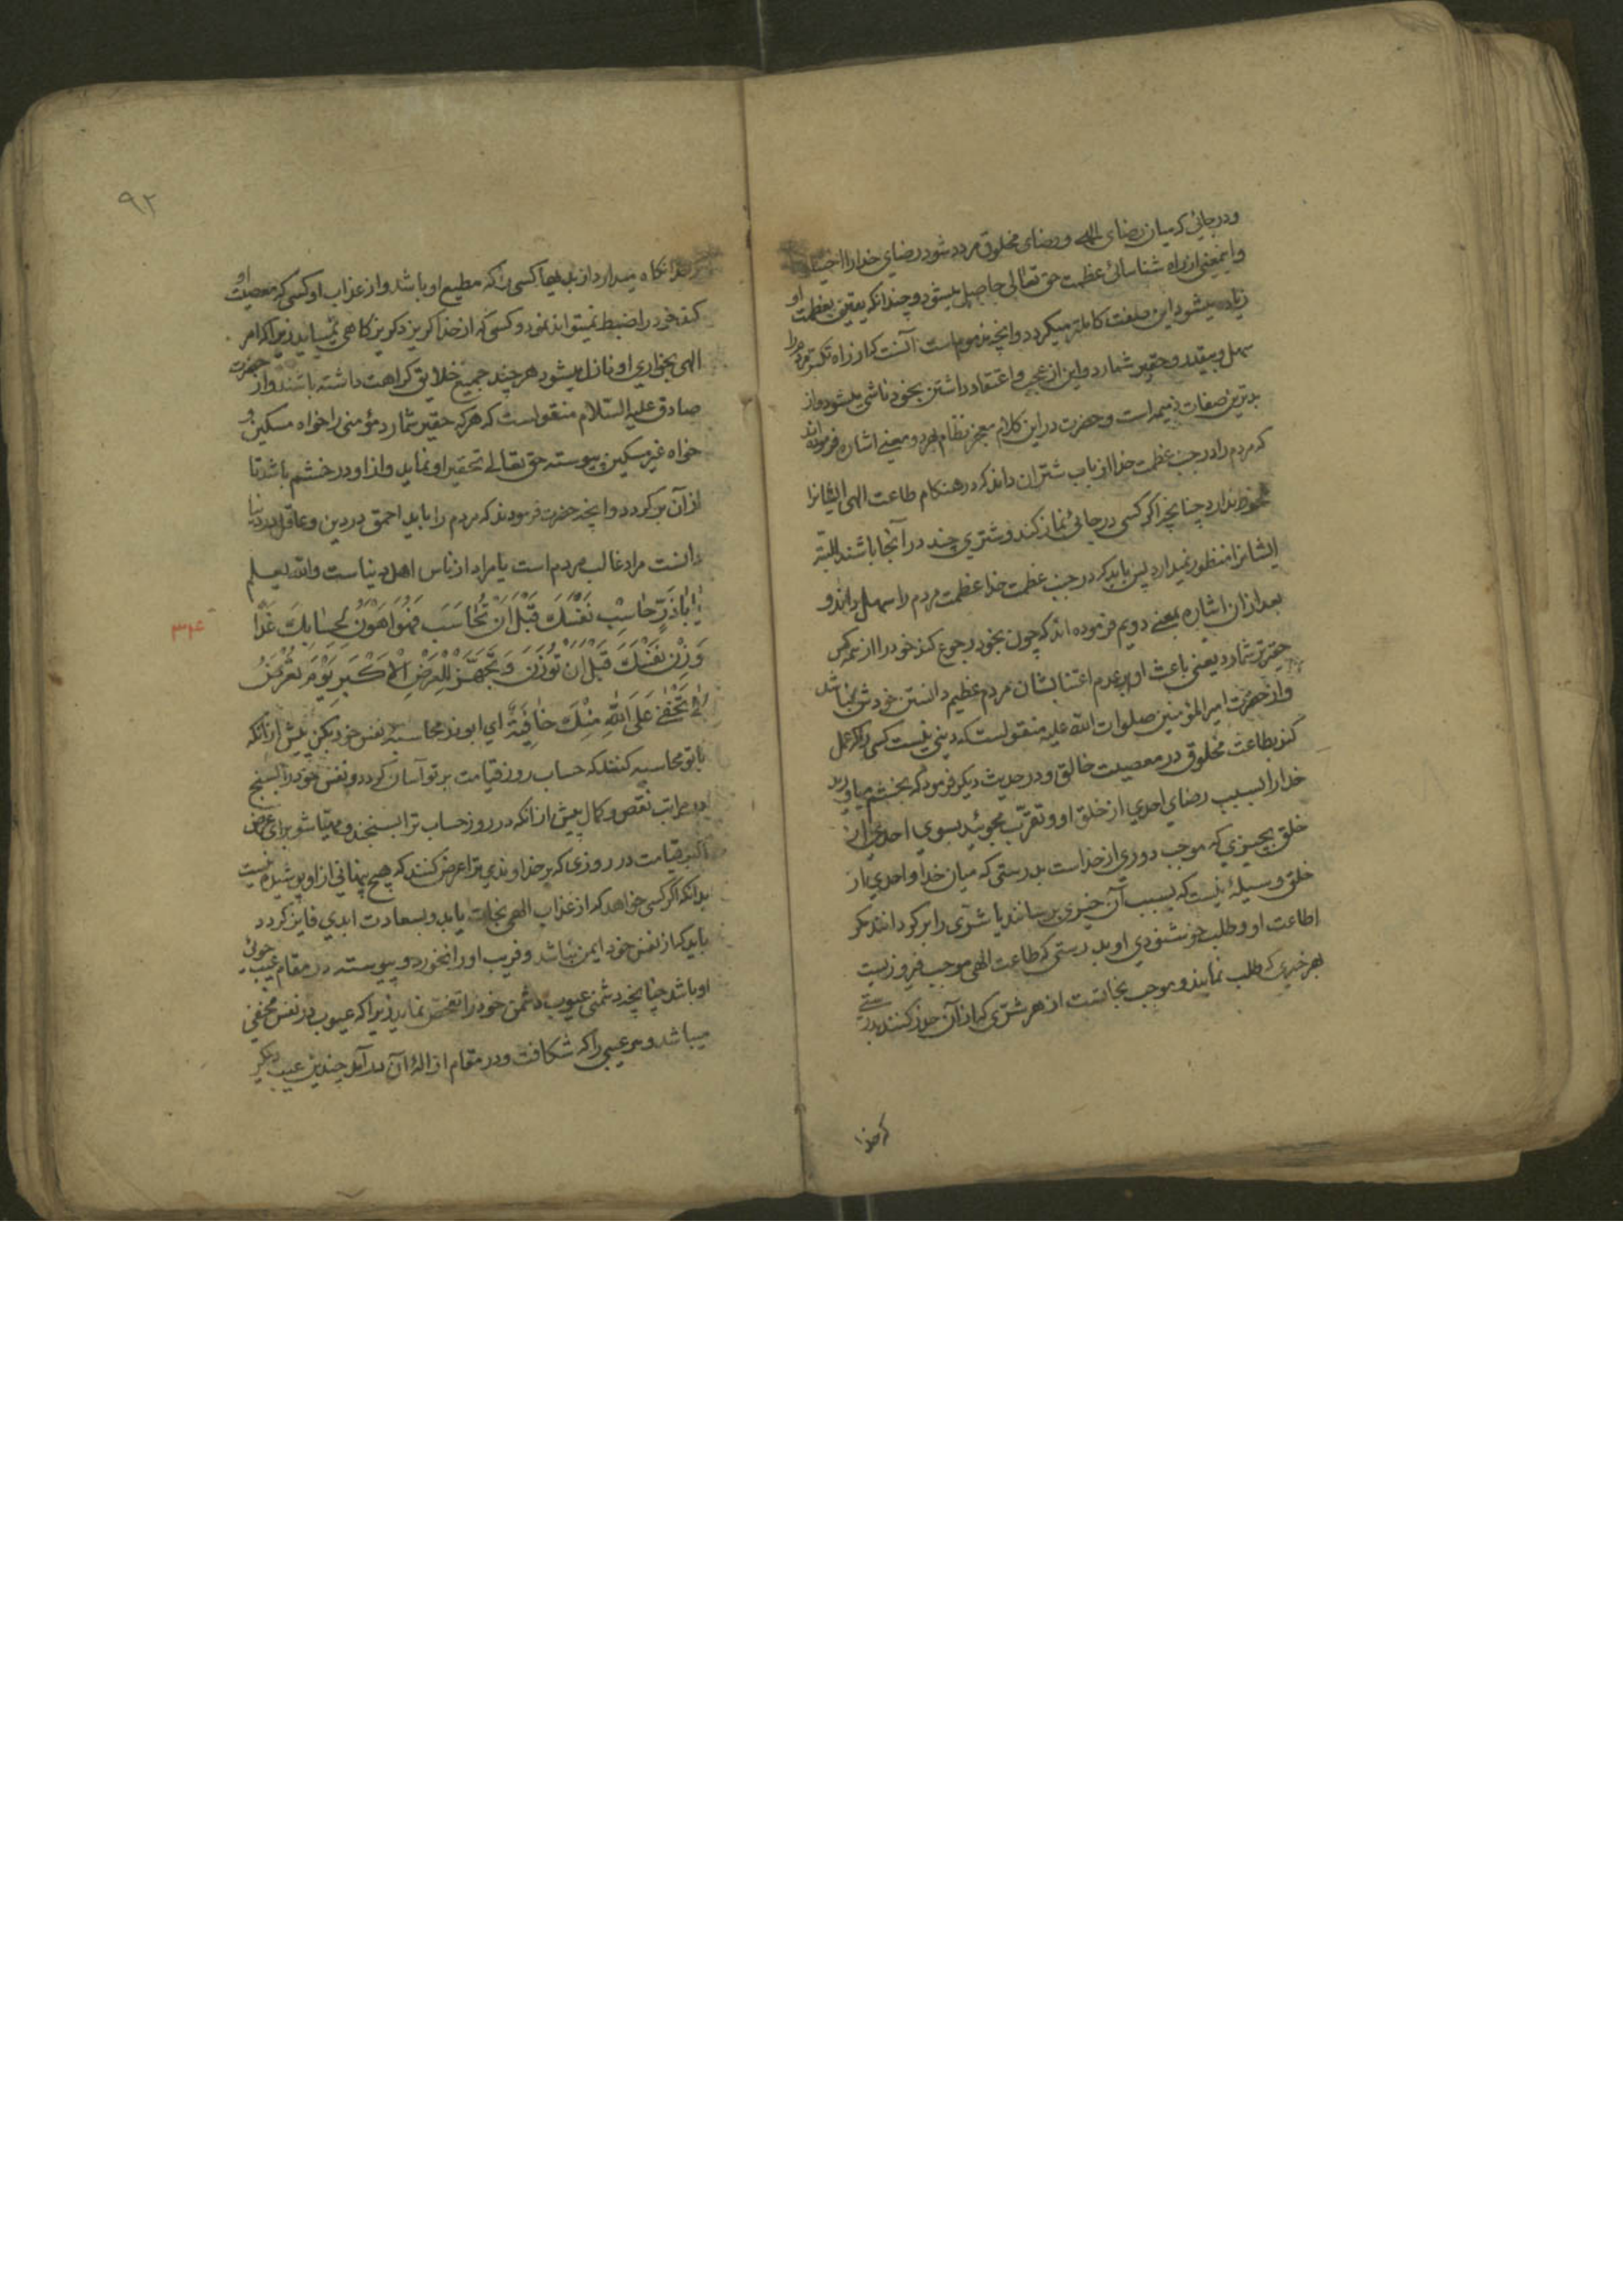 ودرجائی که میان رضای الهی ورضای مخلوق مردد شود رضای خدا را اختیار
واینمعنی از راه شناسائی عظمت حق تعالی حاصل میشود وچندانکه یقین بعظمت او
زیاده میشود این صفت کاملتر میکردد وانچه مذموم است آنست که از راه تکبر مردم را
سهل وبیقدر وحقیر شمارد واین از عجب واعتقاد داشتن بخود ناشی میشود واز
بدترین صفات ذمیمه است وحضرت در این کلام معجز نظام بهر دو معنی اشاره فرموده‌اند
که مردم را در جنب عظمت خدا از باب شتران داند که در هنکام طاعت الهی ایشانرا
ملحوظ ندارد چنانچه اکر کسی در جائی نماز کند وشتری چند در آنجا باشند البته
ایشانرا منظور نمیدارد پس باید که در جنب عظمت خدا عظمت مردم را سهل داند و
بعد از ان اشاره بمعنی دویم فرموده اند که چون بخود رجوع کند خود را از همه کس
حقیرتر شمارد یعنی باعث او بر عدم اعتنا بشان مردم عظیم دانستن خودش نباشد
واز حضرت امیر المؤمنین صلوات الله علیه منقولست که دینی نیست کسی را که عمل
کند بطاعت مخلوق در معصیت خالق ودر حدیث دیکر فرمود که بخشم میاورید
خدا را بسبب رضای احدی از خلق او وتقرب مجوئید بسوی احدی از
خلق بچیزی که موجب دوری از خداست بدرستی که میان خدا واحدی از
خلق وسیلهٔ نیست که بسبب آن خیری برسانند یا شرّی را بر کردانند مکر
اطاعت او وطلب خوشنودی او بدرستی که طاعت الهی موجب فیروزیست
بهر خیری که طلب نمایند وموجب نجاتست از هر شرّی که از آن حذر کنند بدرستی
که خدا
۹۲
که خدا نکاه میدارد از بدیها کسی را که مطیع او باشد واز عذاب او کسی که معصیت او
کند خود را ضبط نمیتواند نمود وکسی که از خدا کریزد کریزکاهی نمییابد زیرا که امر
الهی بخواری او نازل میشود هر چند جمیع خلایق کراهت داشته باشند واز حضرت
صادق علیه السّلام منقولست که هر که حقیر شمارد مؤمنی را خواه مسکین و
خواه غیر مسکین پیوسته حق تعالی تحقیر او نماید واز او در خشم باشد تا
از آن بر کردد وانچه حضرت فرمودند که مردم را باید احمق در دین وعاقل در دنیا
دانست مراد غالب مردم است یا مراد از ناس اهل دنیاست والله یعلم
یٰا اَبٰاذَرٍّ حٰاسِبْ نَفْسَكَ قَبْلَ اَنْ تُحٰاسَبَ فَهُوَ اَهْوَنُ لِحِسٰابِكَ غَدًا
۳۴
وَزِنْ نَفْسَكَ قَبْلَ اَنْ تُوزَنَ وَتَجَهَّزْ لِلْعَرْضِ الْاَكْبَرِ یَوْمَ تُعْرَضُ
لٰا تَخْفٰی عَلَی اللهِ مِنْكَ خٰافِیَةٌ ای ابوذر محاسبه نفس خود بکن پیش از انکه
با تو محاسبه کنند که حساب روز قیامت بر تو آسان کردد ونفس خود را بسنج
در مراتب نقص وکمال پیش از انکه در روز حساب ترا بسنجند ومهیّا شو برای عرض
اکبر قیامت در روزی که بر خداوندی ترا عرض کنند که هیچ پنهانی از او پوشیده نیست
بدانکه اکر کسی خواهد که از عذاب الهی نجات یابد وبسعادت ابدی فایز کردد
باید که از نفس خود ایمن نباشد وفریب او را نخورد وپیوسته در مقام عیب جوئی
او باشد چنانچه دشمنی عیوب دشمن خود را تفحّص نماید زیرا که عیوب در نفس مخفی
میباشد وهر عیبی را که شکافت ودر مقام ازالهٔ آن در آمد چندین عیب دیکر